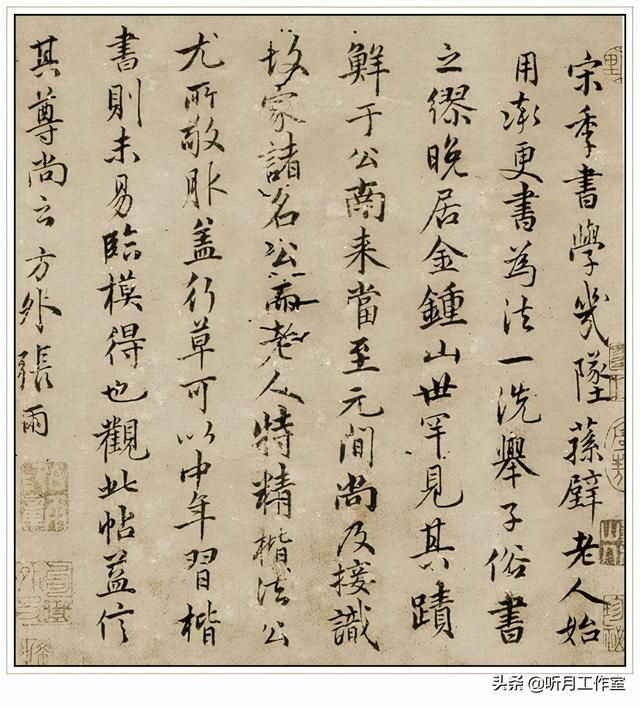 宋季書學幾墜蓀壁老人始
用漸更書為法一洗舉子俗書
之繆晚居金鍾山世罕見其蹟
鮮于公南来當至元間尚及接識
故家諸名公而老人特精楷法公
尤所敬服盖行草可以中年習楷
書則未易臨模得也觀此帖益信
其尊尚云方外張雨
头条 @听月工作室